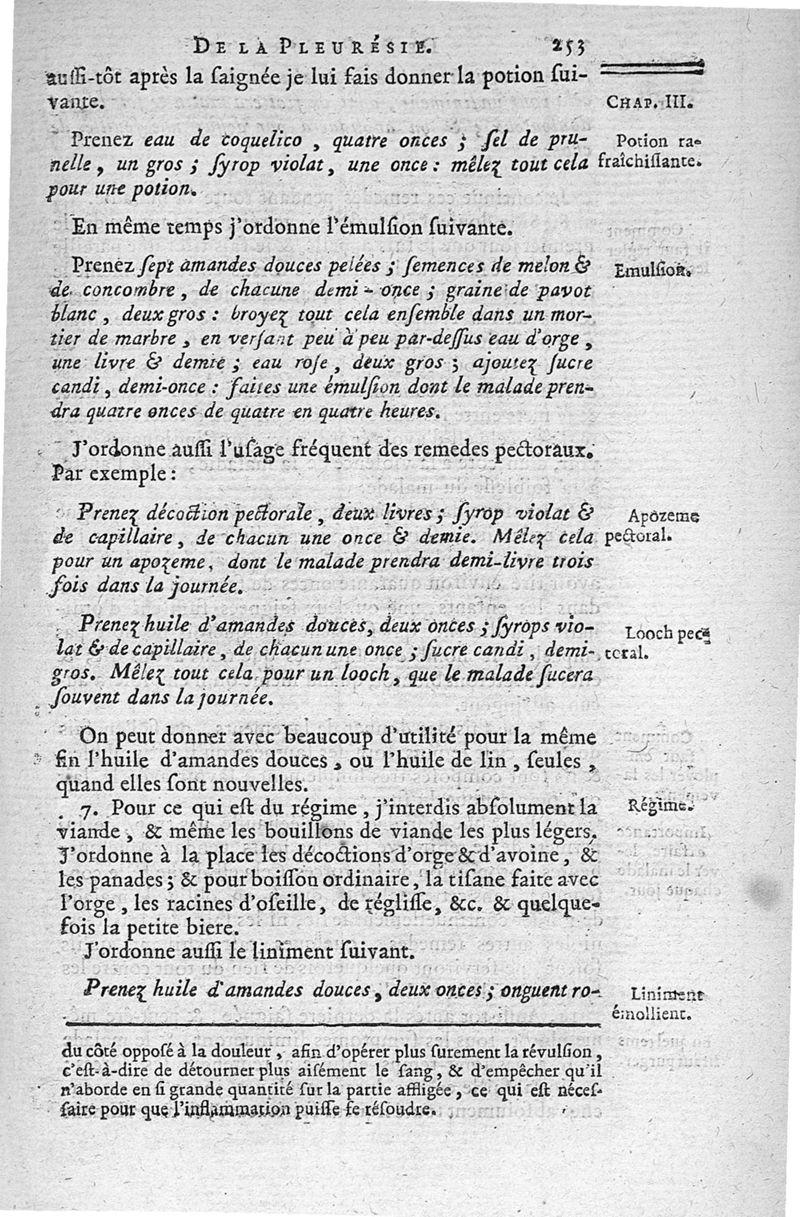 DE LA PLEURÉSIE. 253
auſſi-tôt après la ſaignée je lui fais donner la potion ſui-
vante.
CHAP. III.
Prenez eau de coquelico, quatre onces; ſel de pru-
nelle, un gros; ſyrop violat, une once: mêlez tout cela
pour une potion.
Potion ra-
fraîchiſſante.
En même temps j'ordonne l'émulſion ſuivante.
Prenez ſept amandes douces pelées; ſemences de melon &
de concombre, de chacune demi-once; graine de pavot
blanc, deux gros: broyez tout cela enſemble dans un mor-
tier de marbre, en verſant peu à peu par-deſſus eau d'orge,
une livre & demie; eau roſe, deux gros; ajoutez ſucre
candi, demi-once: faites une émulſion dont le malade pren-
dra quatre onces de quatre en quatre heures.
Emulſion.
J'ordonne auſſi l'uſage fréquent des remedes pectoraux.
Par exemple:
Prenez décoction pectorale, deux livres; ſyrop violat &
de capillaire, de chacun une once & demie. Mêlez cela
pour un apozeme, dont le malade prendra demi-livre trois
fois dans la journée.
Apozeme
pectoral.
Prenez huile d'amandes douces, deux onces; ſyrops vio-
lat & de capillaire, de chacun une once; ſucre candi, demi-
gros. Mêlez tout cela pour un looch, que le malade ſucera
ſouvent dans la journée.
Looch pec-
toral.
On peut donner avec beaucoup d'utilité pour la même
fin l'huile d'amandes douces, ou l'huile de lin, ſeules,
quand elles ſont nouvelles.
7. Pour ce qui eſt du régime, j'interdis abſolument la
viande, & même les bouillons de viande les plus légers.
J'ordonne à la place les décoctions d'orge & d'avoine, &
les panades; & pour boiſſon ordinaire, la tiſane faite avec
l'orge, les racines d'oſeille, de régliſſe, &c. & quelque-
fois la petite biere.
Régime.
J'ordonne auſſi le liniment ſuivant.
Prenez huile d'amandes douces, deux onces; onguent ro-
Liniment
émollient.
du côté oppoſé à la douleur, afin d'opérer plus ſurement la révulſion,
c'eſt-à-dire de détourner plus aiſément le ſang, & d'empêcher qu'il
n'aborde en ſi grande quantité ſur la partie affligée, ce qui eſt néceſ-
ſaire pour que l'inflammation puiſſe ſe réſoudre.